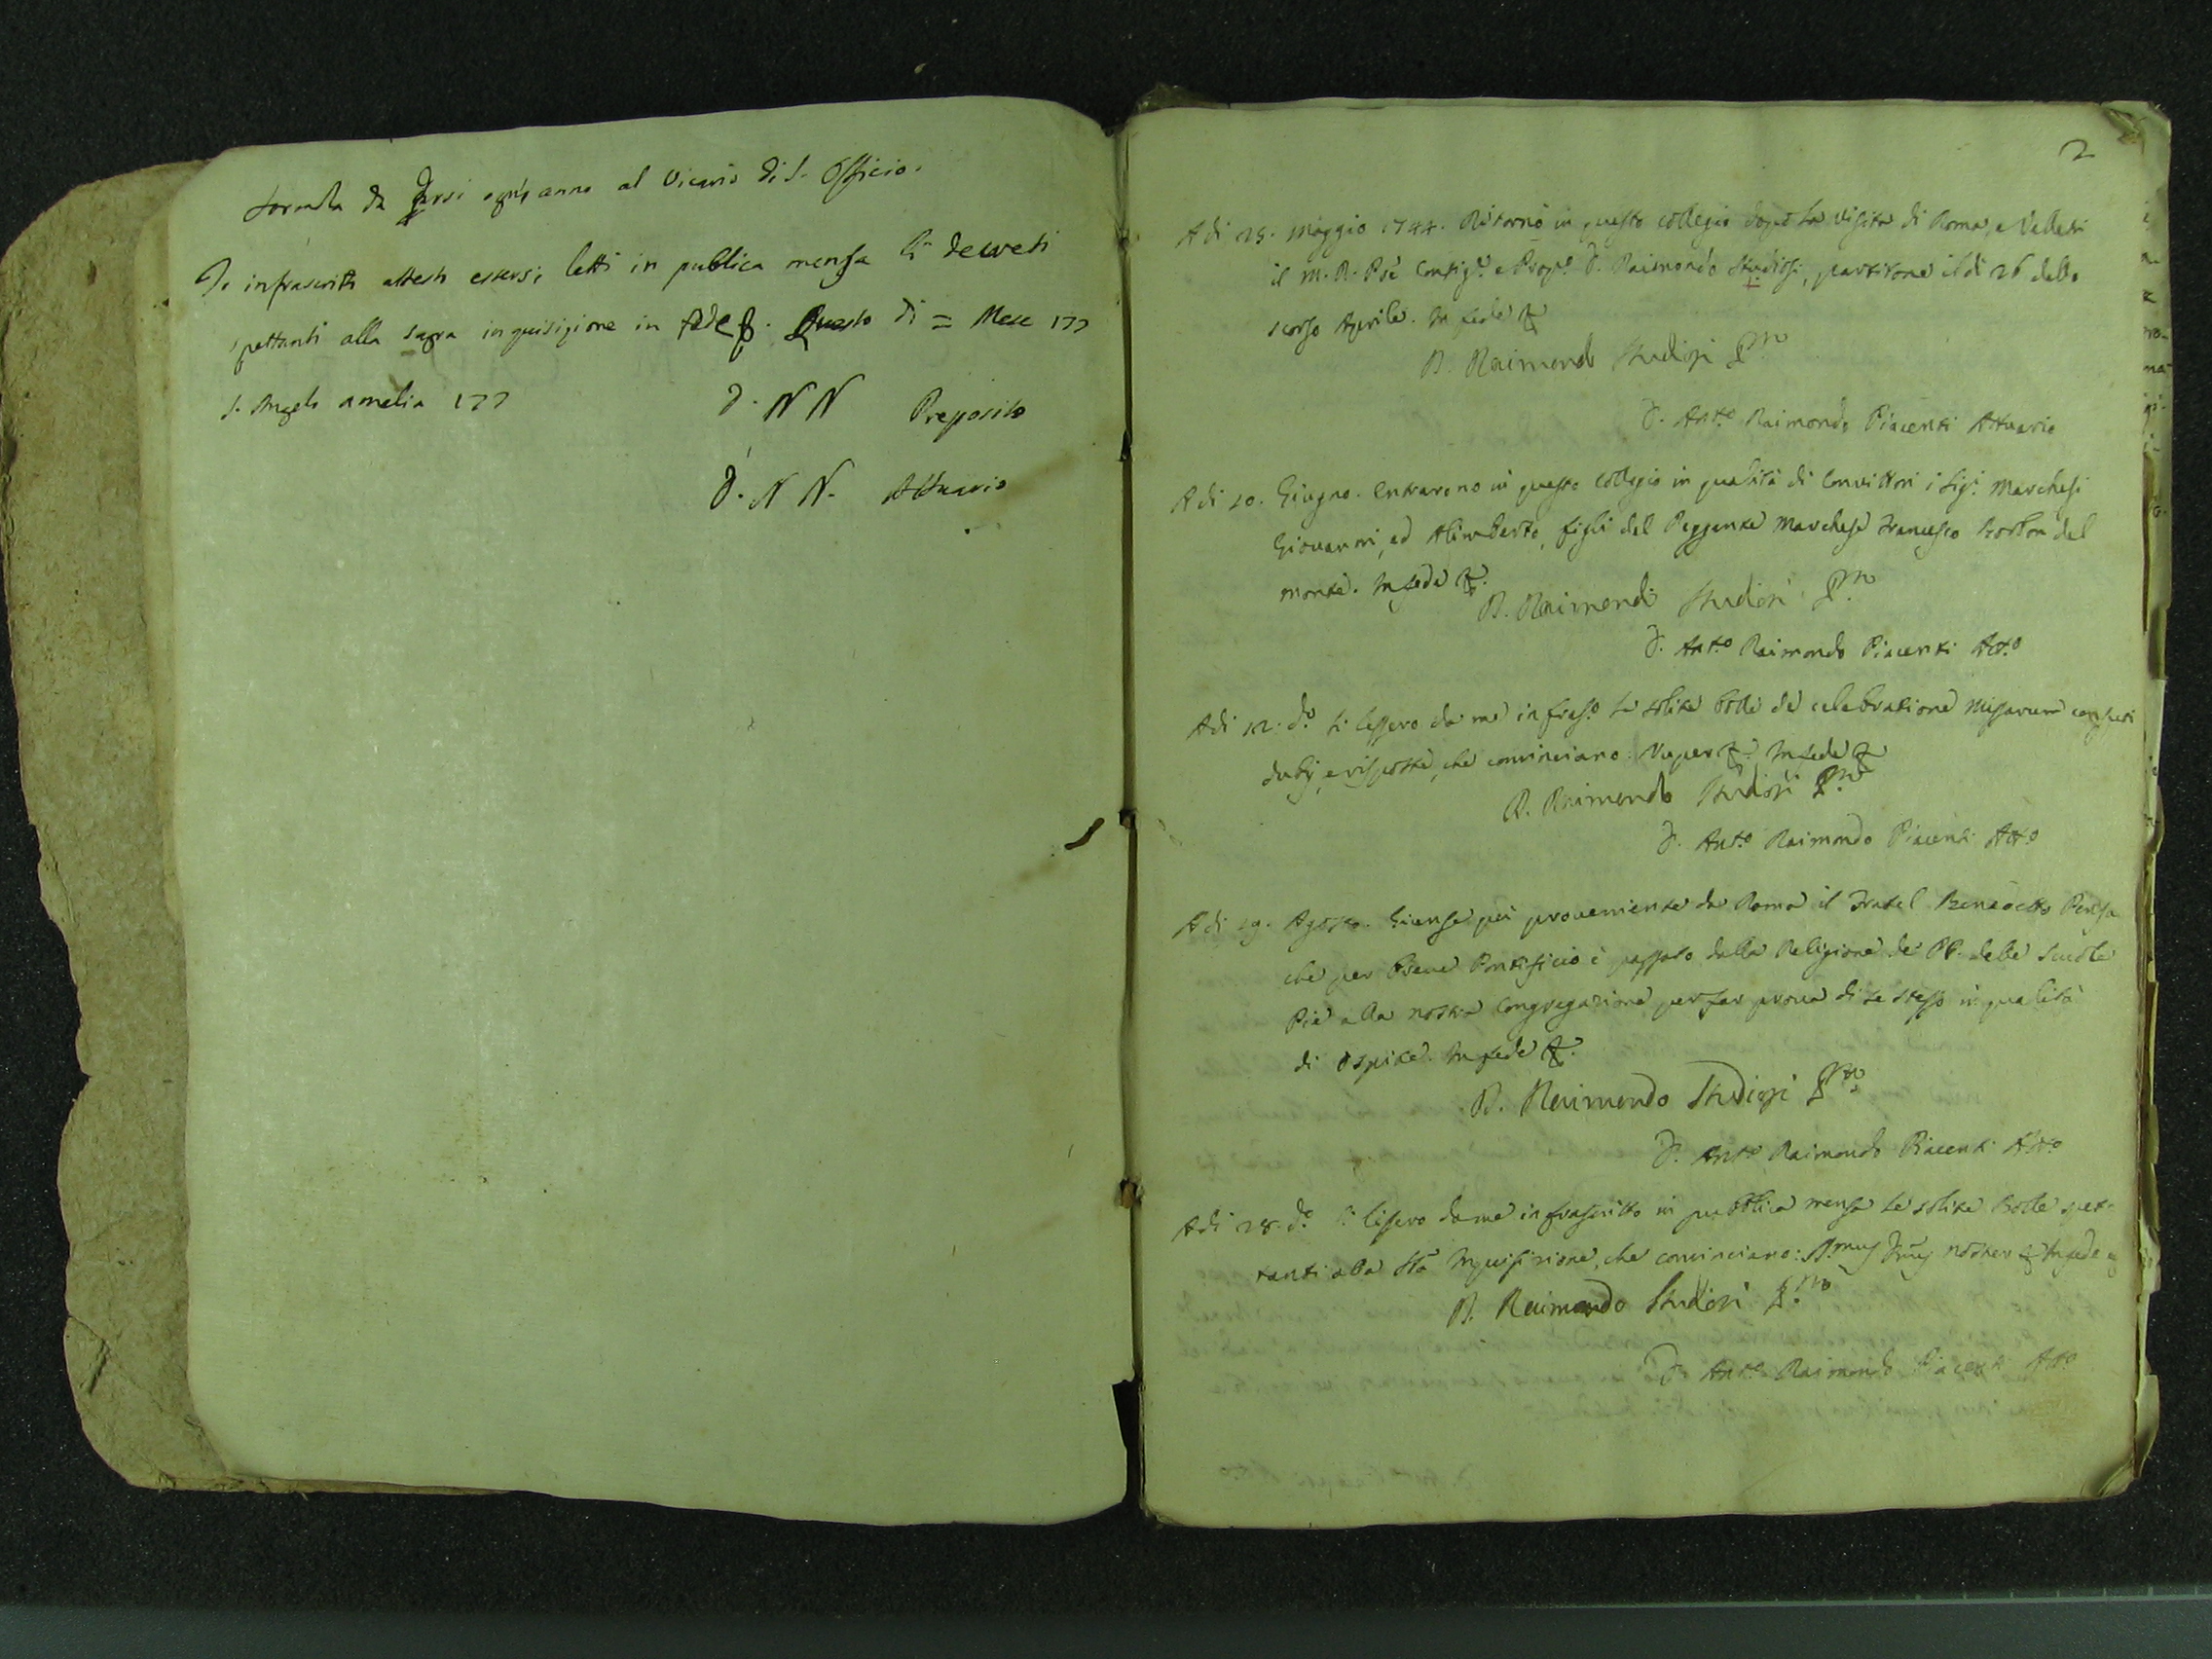 Formola da farsi ogn'anno al Vicario di S. Officio.
Io infrascritto attesto essersi letti in publica mensa li decreti
spettanti alla sagra inquisizione in fede &. Questo di = Mese 177
S. Angelo Amelia 177
D. N N Preposito
D. N N. Attuario
2
A di 25. Maggio 1744. Ritornò in questo collegio dopo la visita di Roma, e Velletri
il M. R. Pre Consigre e Propto D. Raimondo Studiosi, partitone il di 26 dello
scorso Aprile. In fede &
D. Raimondo Studiosi Pto
D. Anto Raimondo Piacenti Attuario
A di 10. Giugno. Entrarono in questo collegio in qualità di Convittori i Sigi Marchesi
Giovanni, ed Alimberto, figli del Reggente Marchese Francesco Borbon del
monte. In fede &.
D. Raimondo Studiosi Pto
D. Anto Raimondo Piacenti Atto
A di 12. do Si lessero da me infrasto le solite bolle de celebratione Missarum
dubij, e risposte, che cominciano: Nuper &. In fede &
D. Raimondo Studiosi Pto
D. Anto Raimondo Piacenti Atto
A di 19. Agosto. Giunse qui proveniente da Roma il Fratel Benedetto Pensa
che per Breve Pontificio è passato dalla Religione de PP. delle Scuole
Pie alla nostra Congregazione per far prova di se stesso in qualità
di ospite. In fede &.
D. Raimondo Studiosi Pto
D. Anto Raimondo Piacenti Atto
A di 28. do Si lessero da me infrascritto in pubblica mensa le solite Bolle spet-
tanti alla Sta Inquisizione, che cominciano: SSmus Dnus noster & In fede &
D. Raimondo Studiosi Pto
D. Anto Raimondo Piacenti Atto